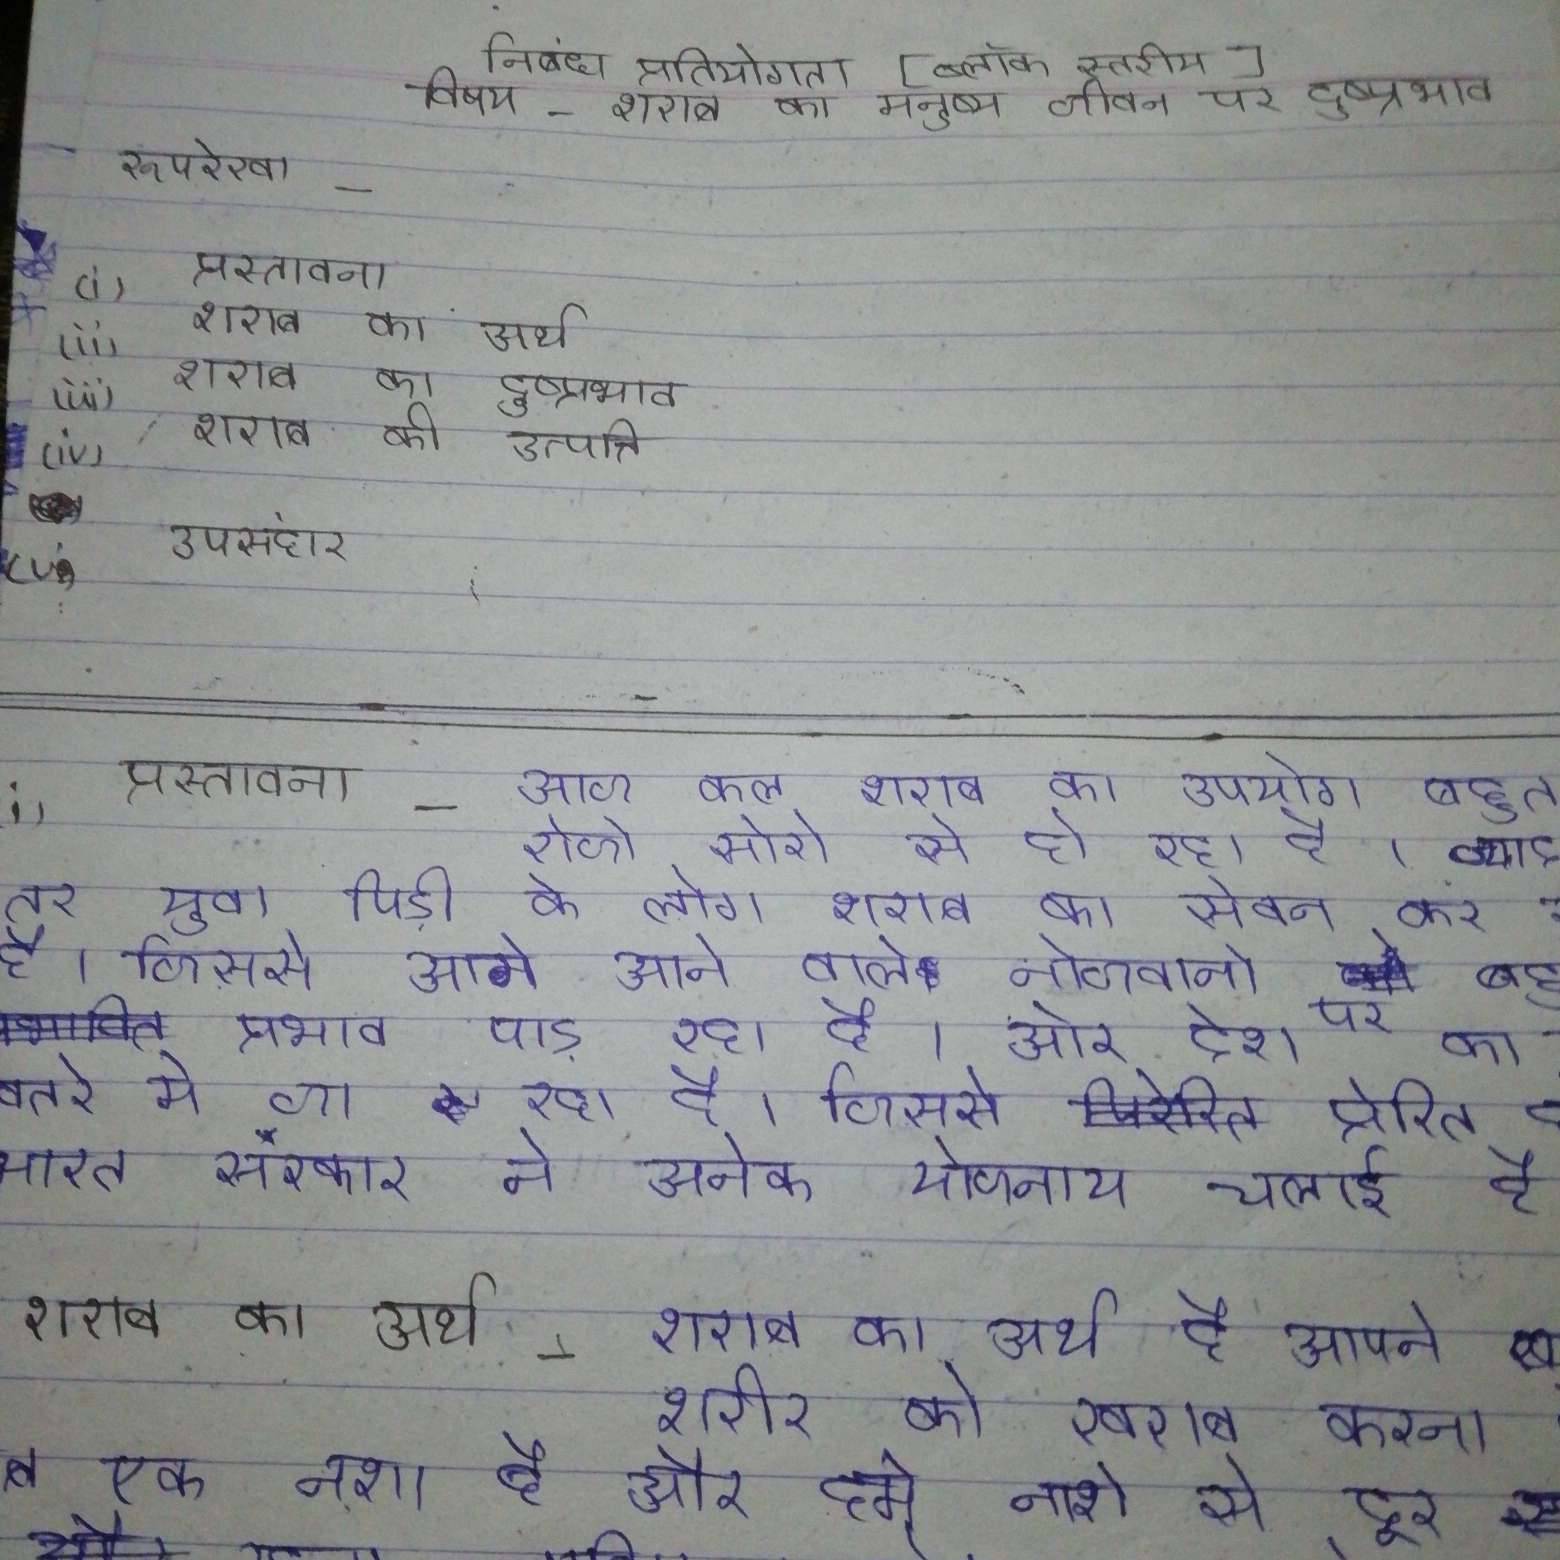 निबंध प्रतियोगता [ब्लॉक स्तरीय]
विषय - शराब का मनुष्य जीवन पर दुष्प्रभाव
रूपरेखा -
(i) प्रस्तावना
(ii) शराब का अर्थ
(iii) शराब का दुष्प्रभाव
(iv) शराब की उत्पत्ति
(v) उपसंहार
i, प्रस्तावना - आज कल शराब का उपयोग बहुत
सोरो से हो रहा है ।
तर युवा पिड़ी के लोग शराब का सेवन कर
है । जिससे आगे आने वाले नोजवानो
प्रभाव पाड़ रहा है । ओर देश पर का
खतरे मे जा रहा है । जिससे प्रेरित
भारत सरकार ने अनेक योजनाय चलाई है
शराब का अर्थ - शराब का अर्थ है आपने
शरीर को खराब करना
ब एक नशा है और हमे नाशे से दूर